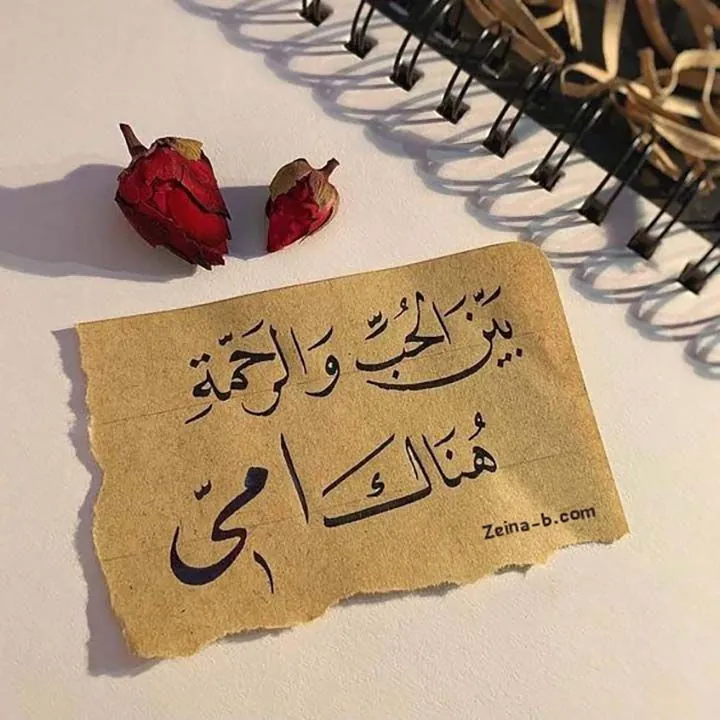 بَيْنَ الحُبِّ وَالرَحمَّةِ
هُنَاكَ اميّ
Zeina-b.com